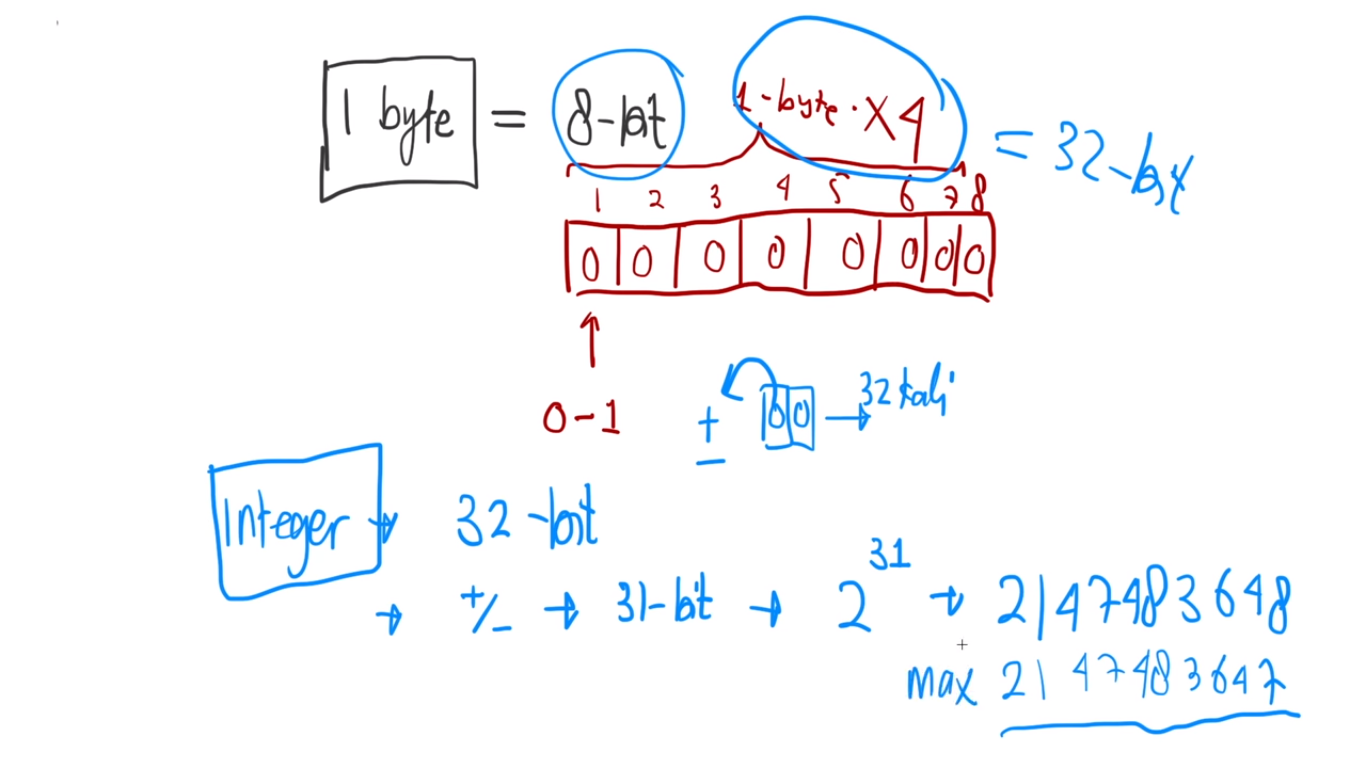 1 byte = 8-bit 1-byte · X4 = 32-bit
1 2 3 4 5 6 7 8
0 0 0 0 0 0 0 0
0-1
+
- 00 → 32 kali
Integer → 32-bit
→ +/- → 31-bit → 2^31 → 2147483648
max 2147483647